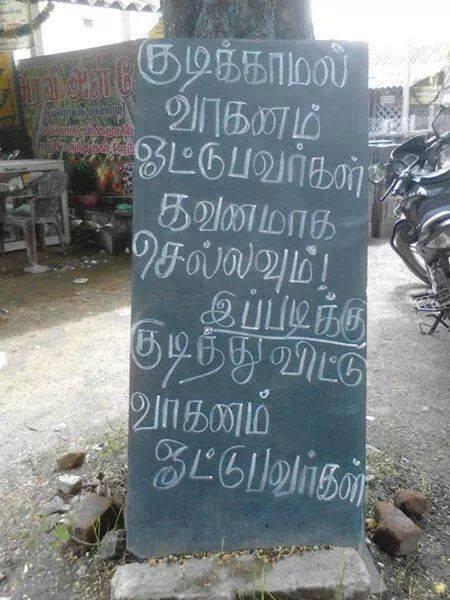 குடிக்காமல்
வாகனம்
ஓட்டுபவர்கள்
கவனமாக
செல்லவும்!
இப்படிக்கு
குடித்து விட்டு
வாகனம்
ஓட்டுபவர்கள்